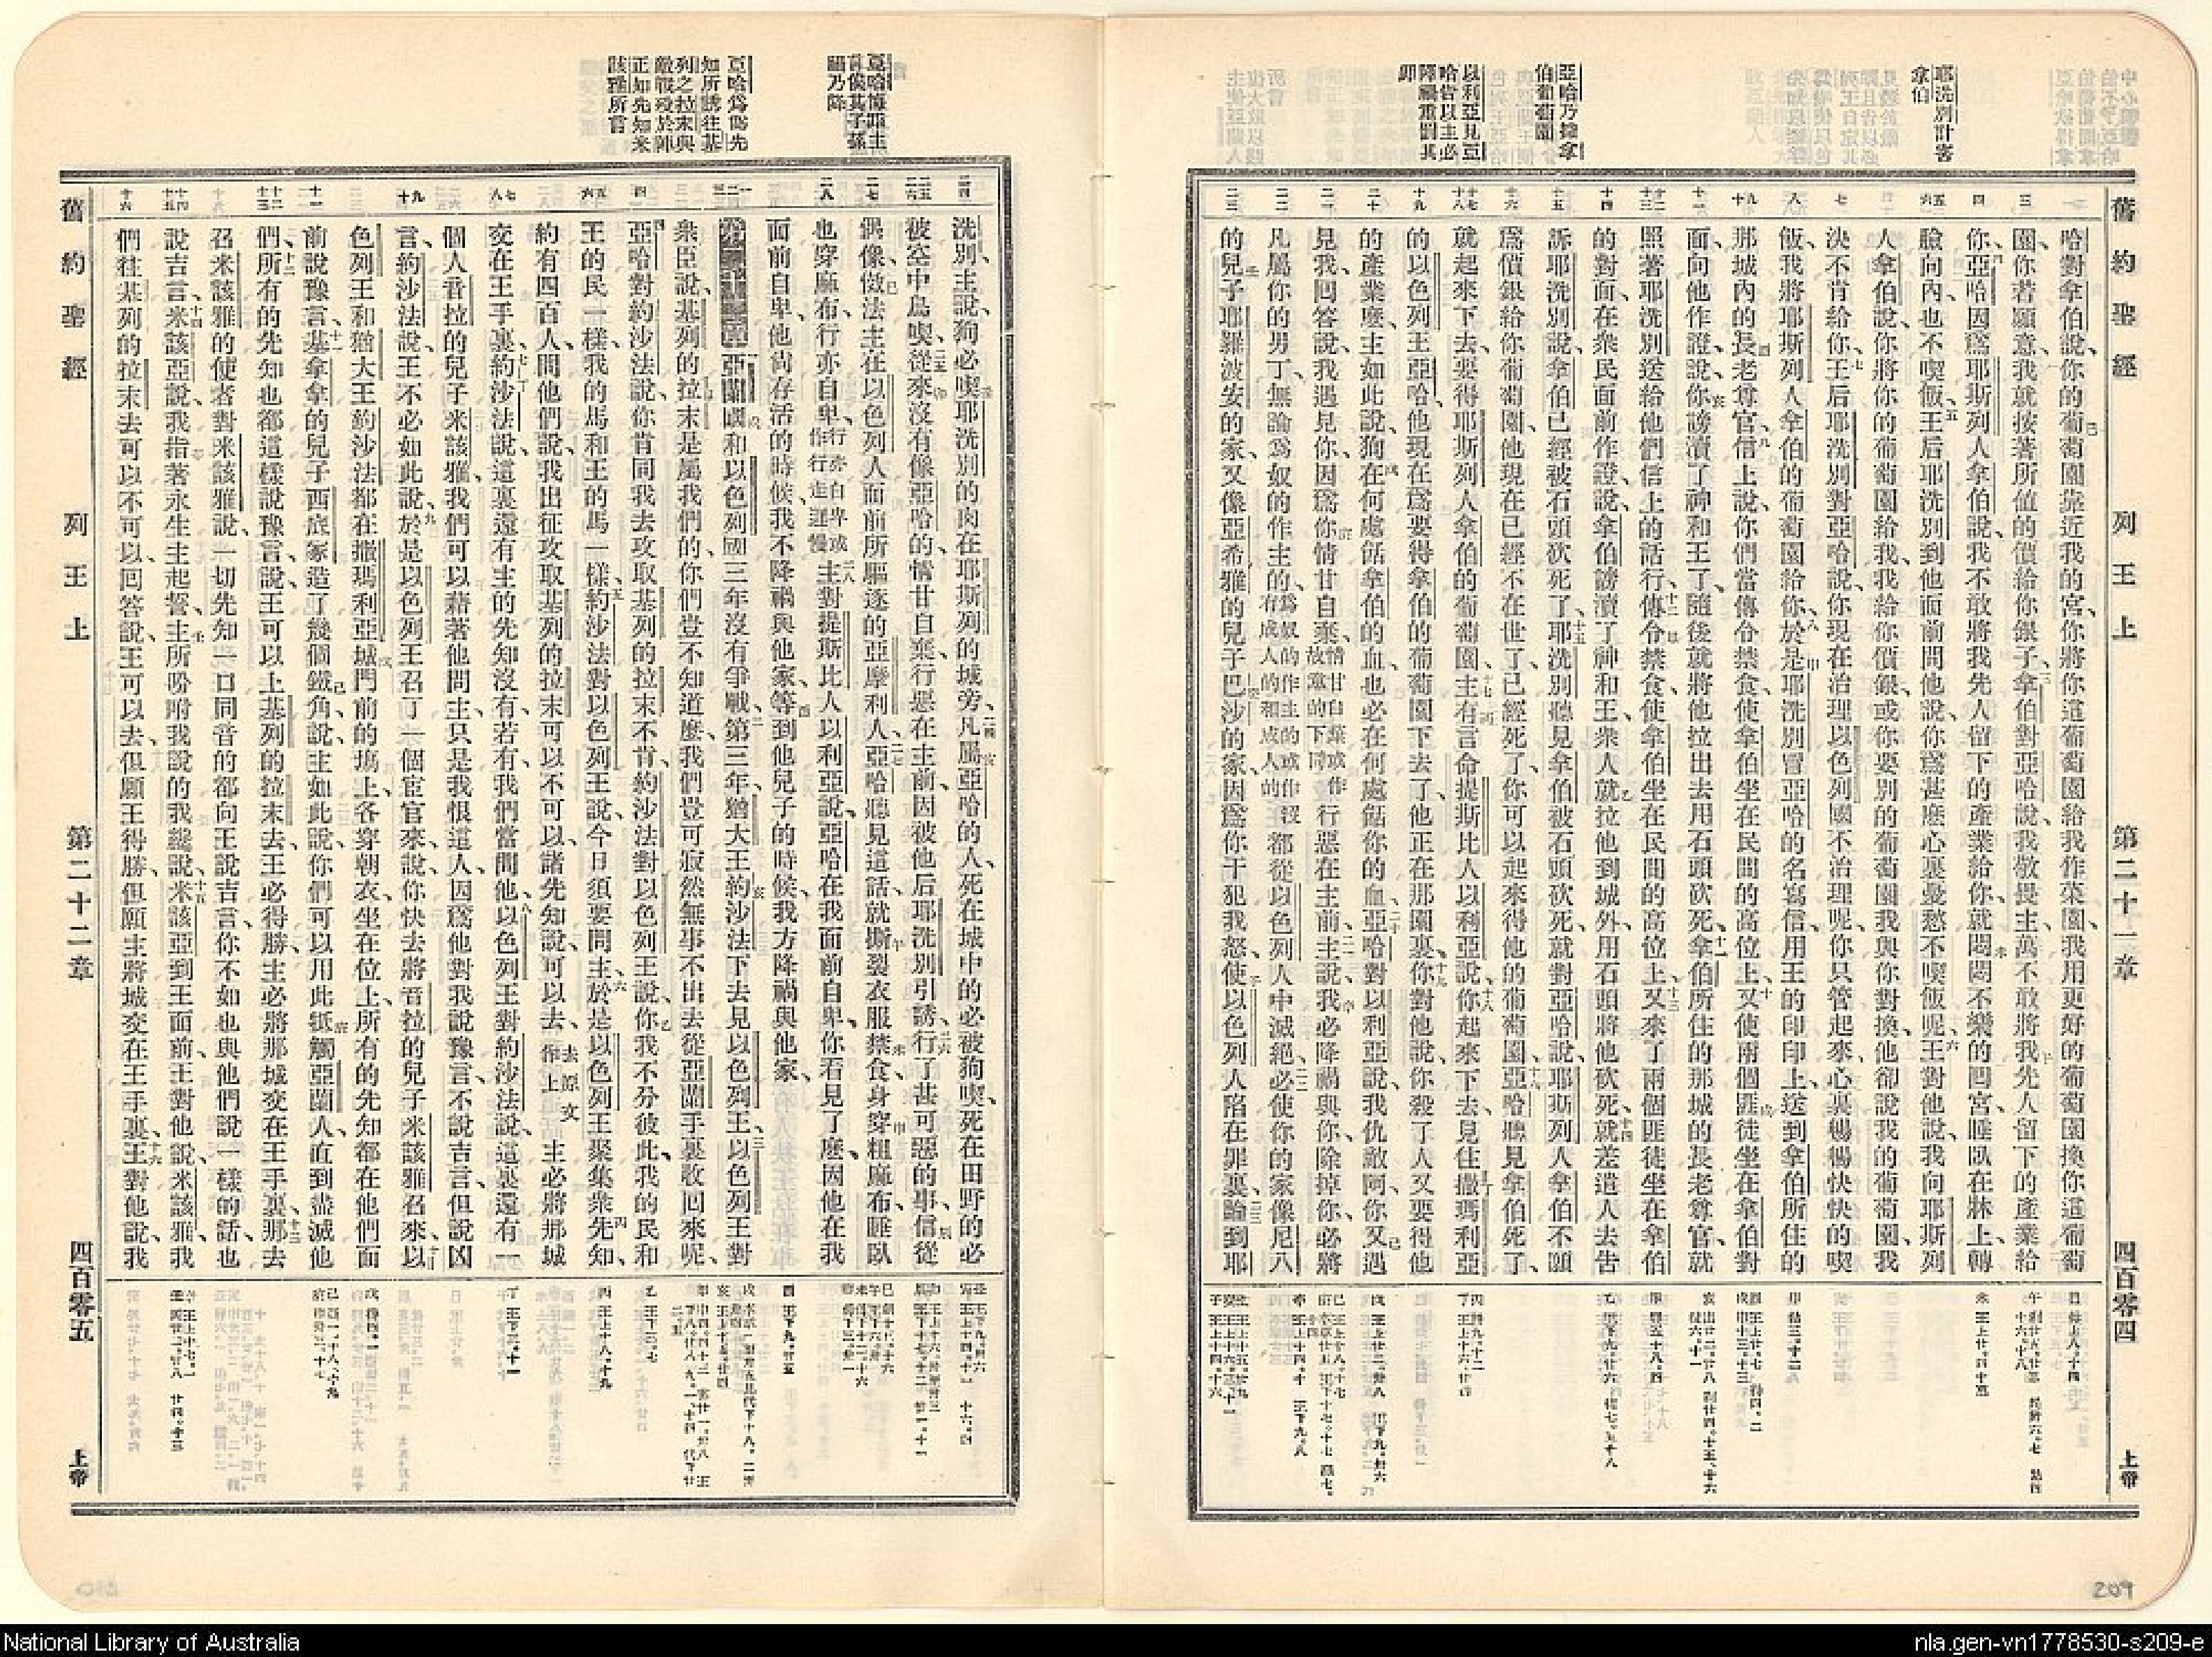 舊約聖經 列王上 第二十一章 四百零四 上帝
耶洗別計害
拿伯
亞哈乃據拿
伯葡萄園
以利亞見亞
哈告以主必
降禍重罰其
罪
哈對拿伯說、你的葡萄園靠近我的宮、你將你這葡萄園給我作菜園、我用更好的葡萄園換你這葡萄
園、你若願意、我就按著所值的價給你銀子、拿伯對亞哈說、我敬畏主、萬不敢將我先人留下的產業給
你、亞哈因爲耶斯列人拿伯說、我不敢將我先人留下的產業給你、就悶悶不樂的回宮、睡臥在牀上、轉
臉向內、也不喫飯、王后耶洗別到他面前問他說、你爲甚麽心裏憂愁不喫飯呢、王對他說、我向耶斯列
人拿伯說、你將你的葡萄園給我、我給你價銀、或你要別的葡萄園、我與你對換、他卻說、我的葡萄園、我
決不肯給你、王后耶洗別對亞哈說、你現在治理以色列國不治理呢、你只管起來、心裏暢暢快快的喫
飯、我將耶斯列人拿伯的葡萄園給你、於是耶洗別冒亞哈的名寫信、用王的印印上、送到拿伯所住的
那城內的長老尊官、信上說、你們當傳令禁食、使拿伯坐在民間的高位上、又使兩個匪徒坐在拿伯對
面、向他作證、說、你謗瀆了神和王了、隨後就將他拉出去用石頭砍死、拿伯所住的那城的長老尊官、就
照著耶洗別送給他們信上的話行、傳令禁食、使拿伯坐在民間的高位上、又來了兩個匪徒坐在拿伯
的對面、在衆民面前作證、說、拿伯謗瀆了神和王、衆人就拉他到城外、用石頭將他砍死、就差遣人去告
訴耶洗別說、拿伯已經被石頭砍死了、耶洗別聽見拿伯被石頭砍死、就對亞哈說、耶斯列人拿伯不願
爲價銀給你葡萄園、他現在已經不在世了、已經死了、你可以起來得他的葡萄園、亞哈聽見拿伯死了、
就起來下去、要得耶斯列人拿伯的葡萄園、主有言命提斯比人以利亞說、你起來下去、見住撒瑪利亞
的以色列王亞哈、他現在爲要得拿伯的葡萄園下去了、他正在那園裏、你對他說、你殺了人又要得他
的產業麽、主如此說、狗在何處餂拿伯的血、也必在何處餂你的血、亞哈對以利亞說、我仇敵阿、你又遇
見我、回答說、我遇見你、因爲你情甘自棄、情甘自棄或作故意的下同行惡在主前、主說、我必降禍與你、除掉你、必將
凡屬你的男丁、無論爲奴的作主的、爲奴的作主的或作沒有成人的和成人的都從以色列人中滅絕、必使你的家像尼八
的兒子耶羅波安的家、又像亞希雅的兒子巴沙的家、因爲你干犯我怒、使以色列人陷在罪裏、論到耶
209
亞哈悔罪主
言俟其子孫
國乃降
亞哈爲僞先
知所誘往基
列之拉末與
敵戰歿於陣
正如先知米
該雅所言
洗別、主說、狗必喫耶洗別的肉在耶斯列的城旁、凡屬亞哈的人、死在城中的必被狗喫、死在田野的必
被空中鳥喫、從來沒有像亞哈的、情甘自棄行惡在主前、因被他后耶洗別引誘、行了甚可惡的事、信從
偶像、倣法主在以色列人面前所驅逐的亞摩利人、亞哈聽見這話、就撕裂衣服、禁食、身穿粗麻布、睡臥
也穿麻布、行亦自卑、行亦自卑或作行走遲慢主對提斯比人以利亞說、亞哈在我面前自卑、你看見了麽、因他在我
面前自卑、他尚存活的時候、我不降禍與他家、等到他兒子的時候、我方降禍與他家、
第二十二章 亞蘭國和以色列國三年沒有爭戰、第三年、猶大王約沙法下去見以色列王、以色列王對
衆臣說、基列的拉末是屬我們的、你們豈不知道麽、我們豈可寂然無事不出去從亞蘭手裏收回來呢、
亞哈對約沙法說、你肯同我去攻取基列的拉末不肯、約沙法對以色列王說、你我不分彼此、我的民和
王的民一樣、我的馬和王的馬一樣、約沙法對以色列王說、今日須要問主、於是以色列王聚集衆先知、
約有四百人、問他們說、我出征攻取基列的拉末可以不可以、諸先知說、可以去、去原文作上主必將那城
交在王手裏、約沙法說、這裏還有主的先知沒有、若有、我們當問他、以色列王對約沙法說、這裏還有一
個人、音拉的兒子米該雅、我們可以藉著他問主、只是我恨這人、因爲他對我說豫言、不說吉言、但說凶
言、約沙法說、王不必如此說、於是以色列王召了一個宦官來、說、你快去將音拉的兒子米該雅召來、以
色列王和猶大王約沙法都在撒瑪利亞城門前的場上、各穿朝衣、坐在位上、所有的先知都在他們面
前說豫言、基拿拿的兒子西底家造了幾個鐵角、說、主如此說、你們可以用此牴觸亞蘭人、直到盡滅他
們、所有的先知也都這樣說豫言、說、王可以上基列的拉末去、王必得勝、主必將那城交在王手裏、那去
召米該雅的使者對米該雅說、一切先知一口同音的都向王說吉言、你不如也與他們說一樣的話、也
說吉言、米該亞說、我指著永生主起誓、主所吩咐我說的、我纔說、米該亞到王面前、王對他說、米該雅、我
們往基列的拉末去可以不可以、回答說、王可以去、但願王得勝、但願主將城交在王手裏、王對他說、我
舊約聖經 列王上 第二十二章 四百零五 上帝
National Library of Australia
nla.gen-vn1778530-s209-e